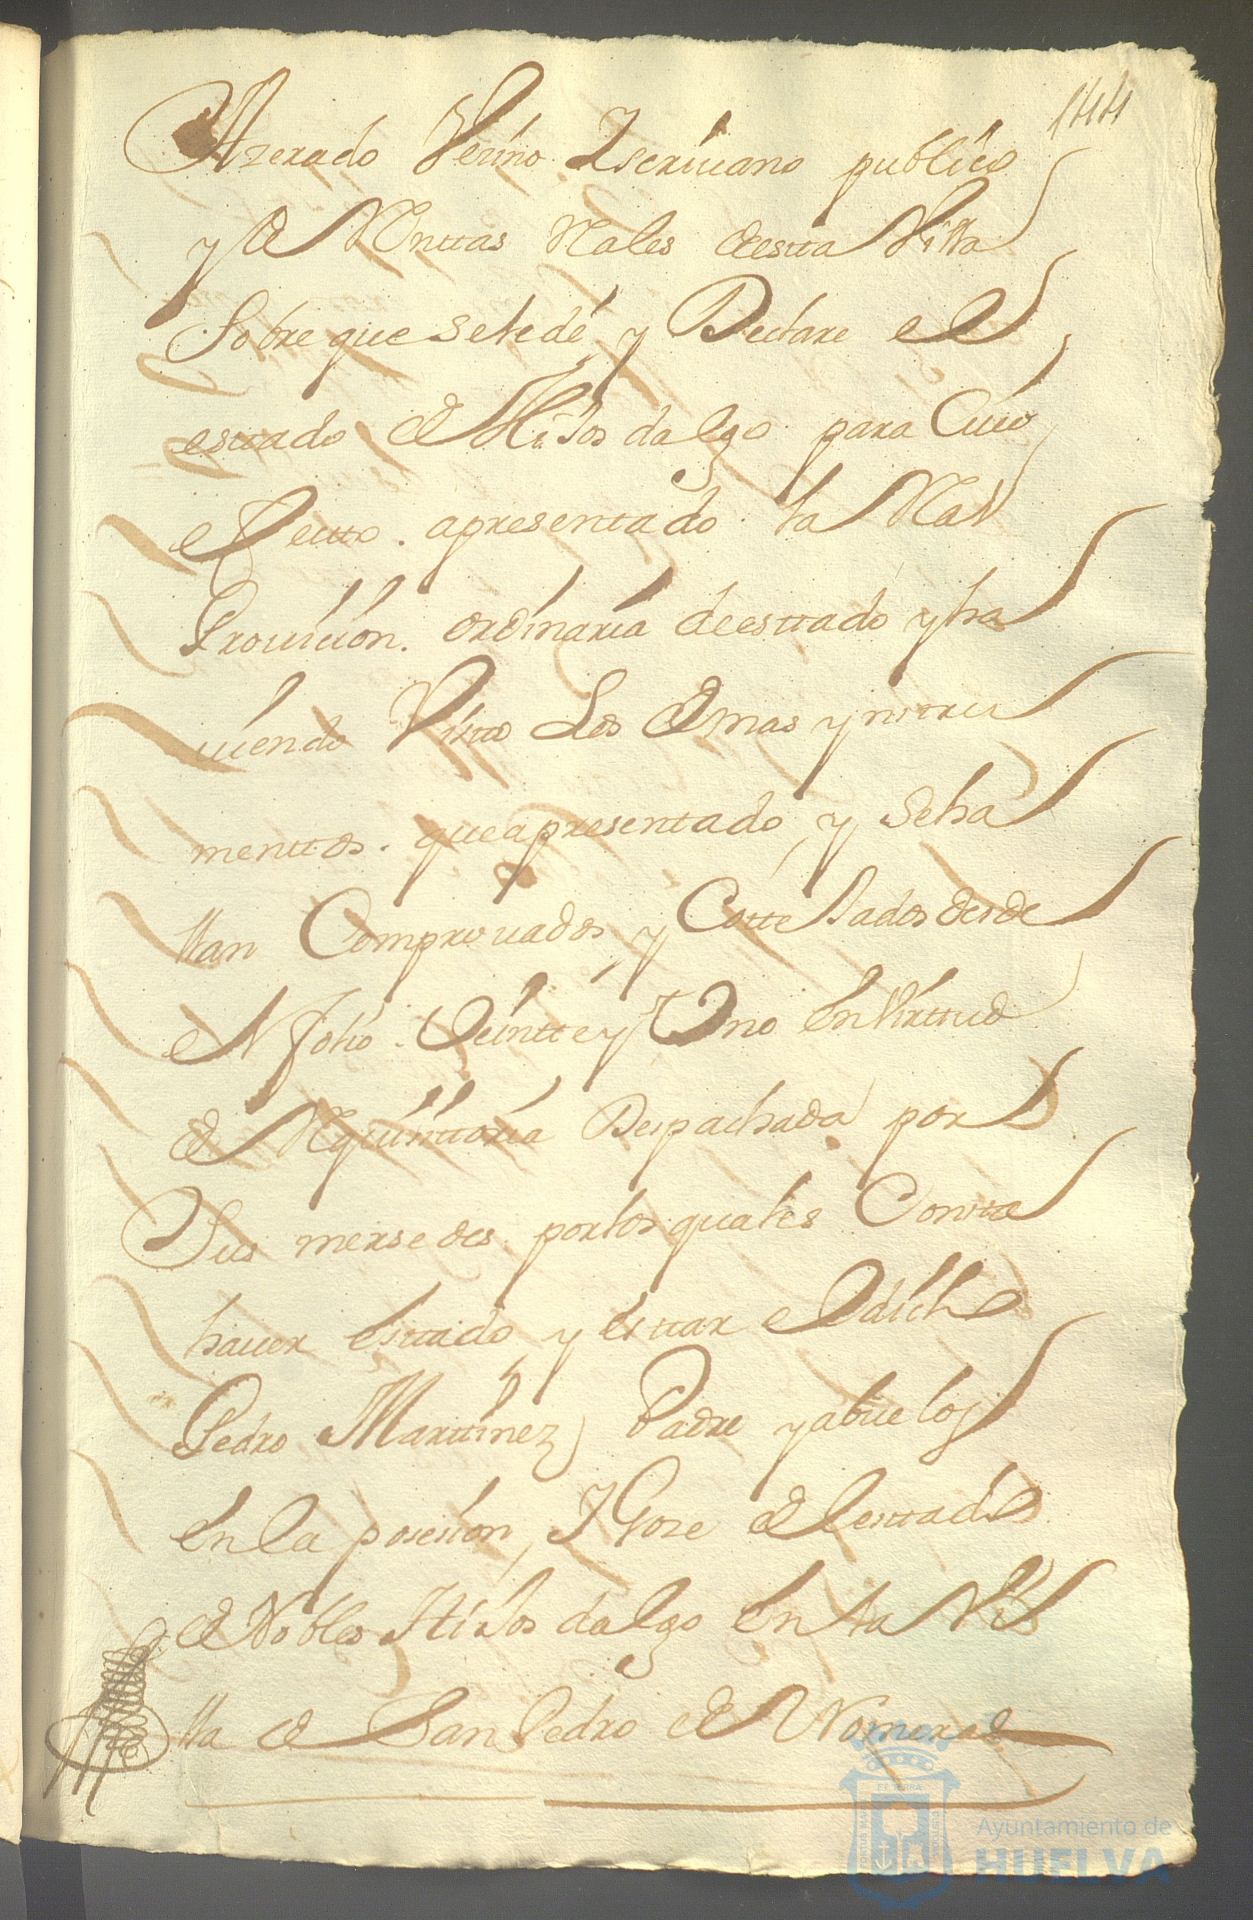 144
Azerado Vezino Iscriuano publico
y de Renttas Rales destta Villa
Sobre que sele dé y Declare el
esttado de Hijos dalgo para Cuio
efectto. apresentado la Ral
Prouision. ordinaria deesttado y ha
uiendo Visto Los demas ynstru
menttos. que apresentado, y seha
llan Comprouados, y Cottejados desde
el folio. Veintte y Uno En Virttud
de Requisittoria Despachada por
Sus mersedes. por los quales Consta
hauer Esttado, y Esttar el dicho
Pedro Marttinez, Padre y abuelos
En la posesion, I Gose del esttado
de Nobles Hijos dalgo En la Vi
lla de San Pedro de Romeral
Ayuntamiento de
HUELVA